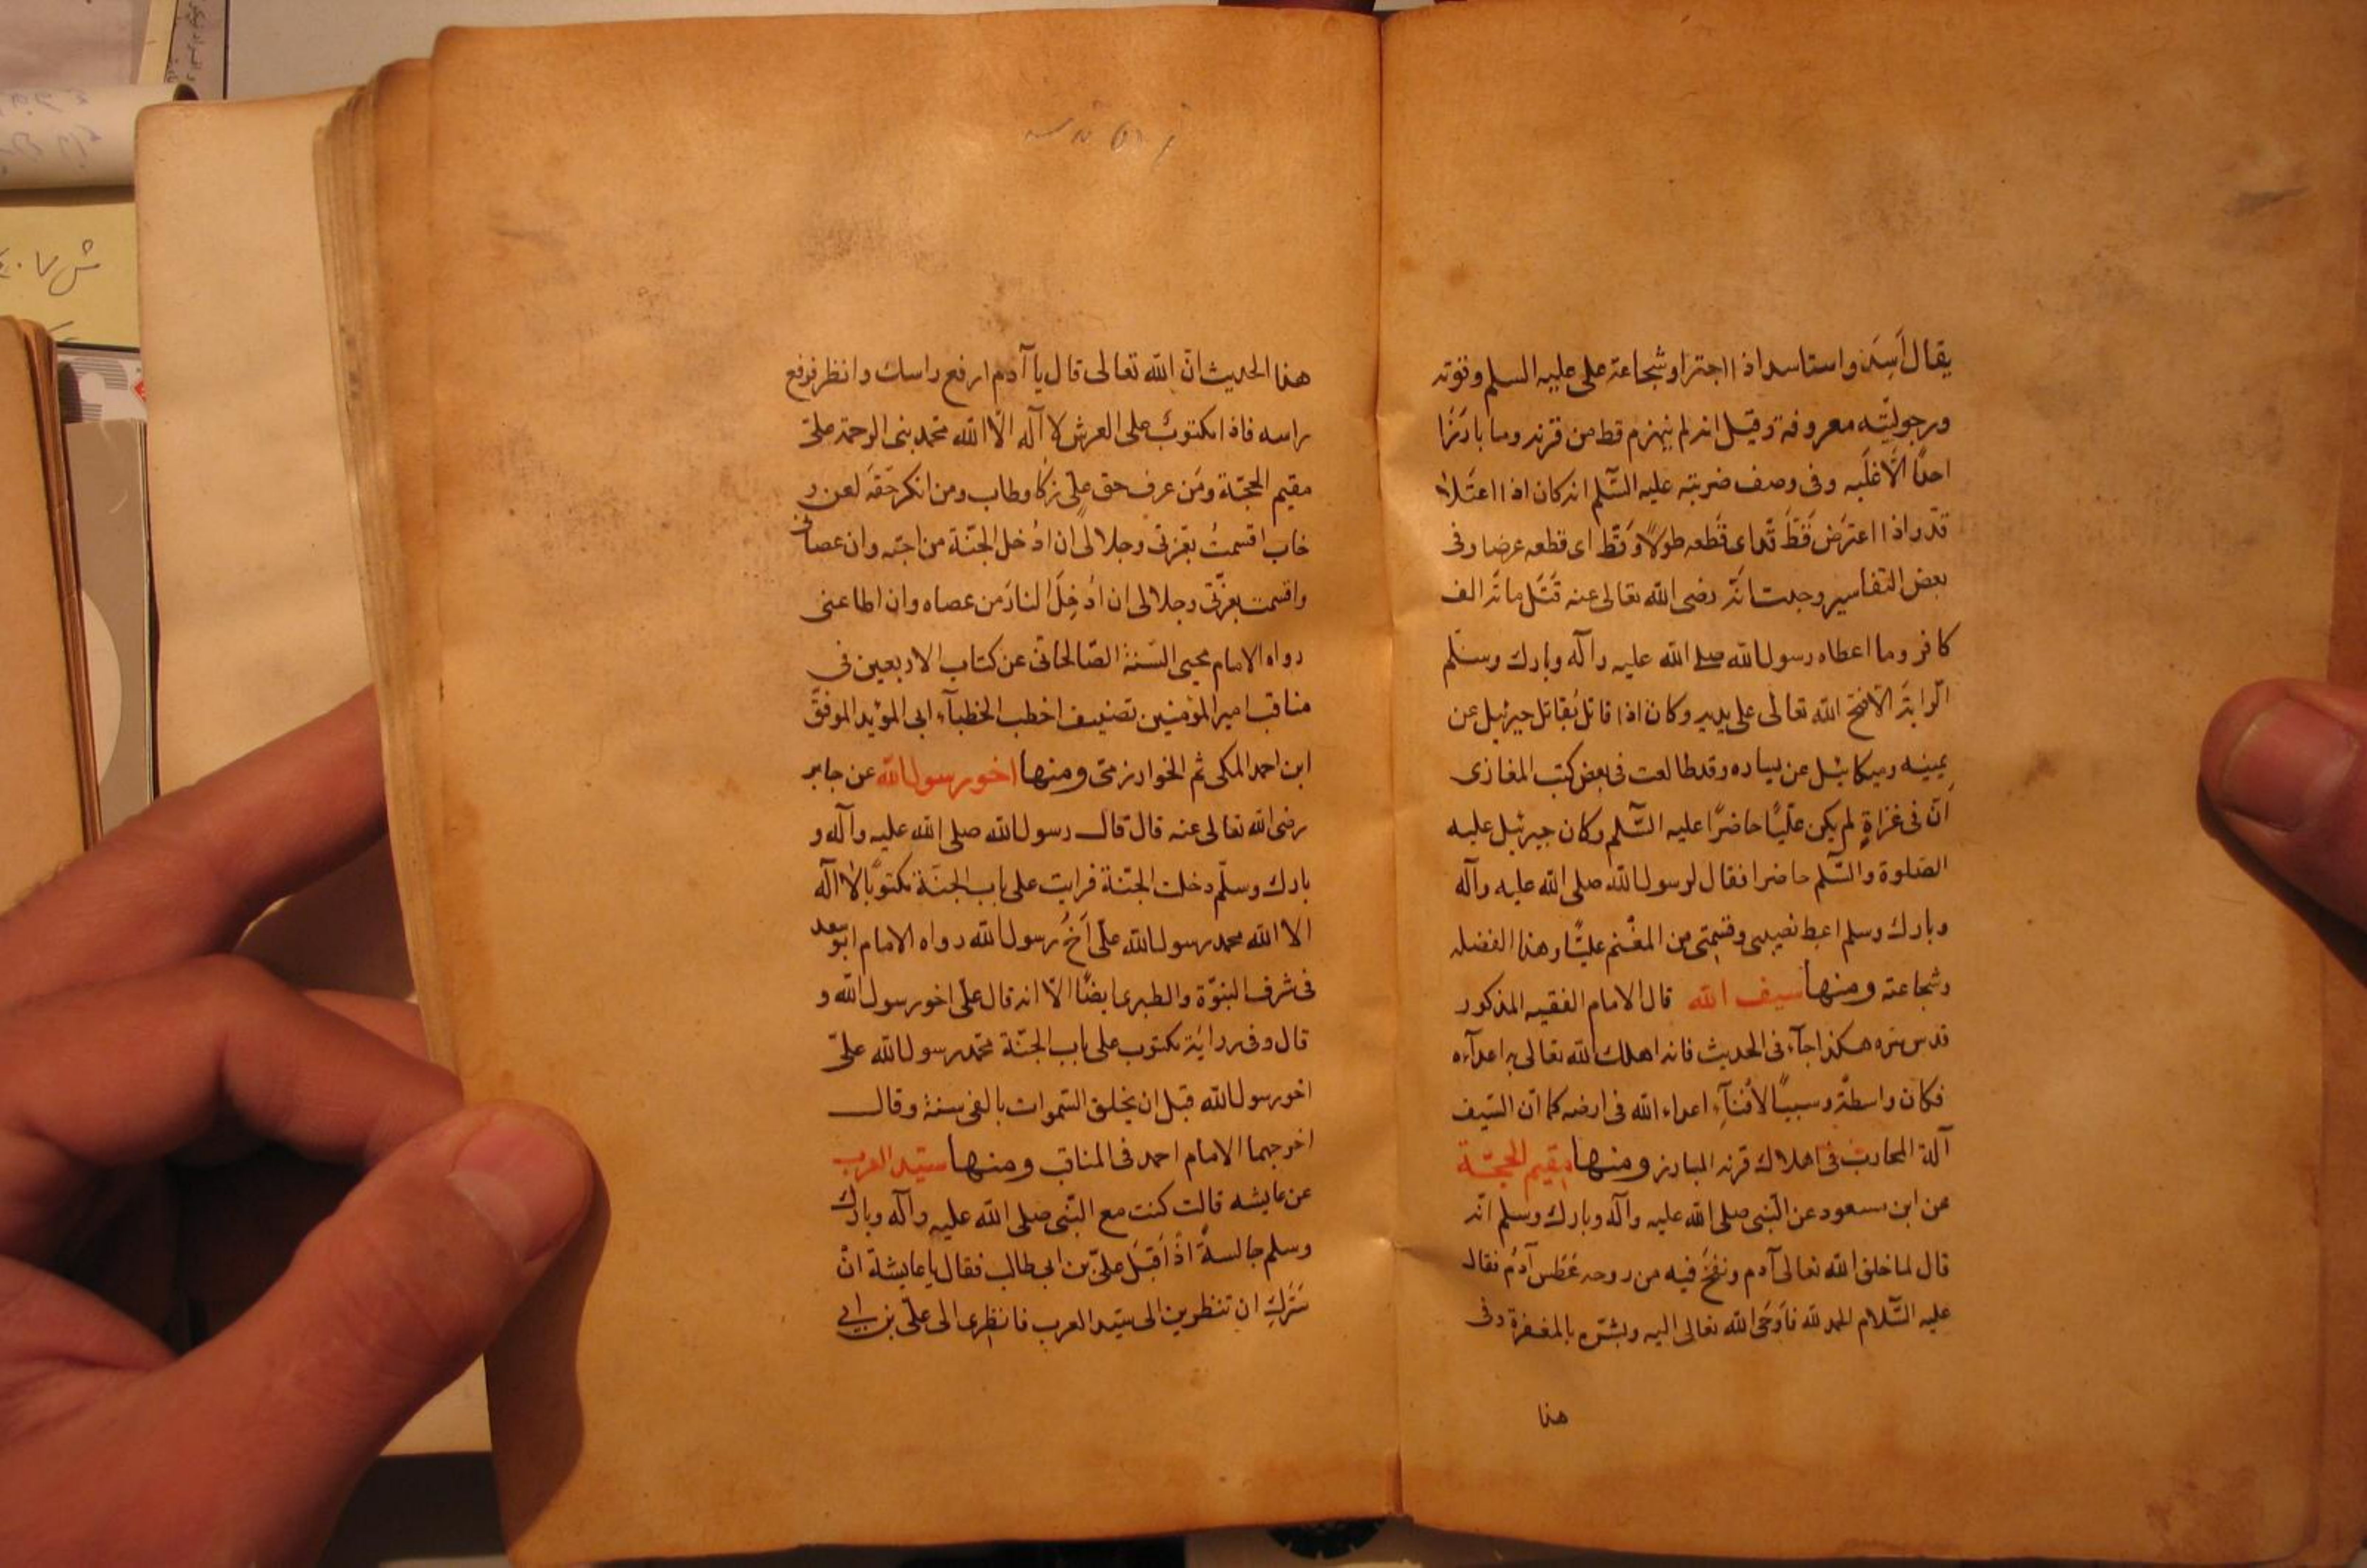 يقال أسِدَ واستاسد اذا اجترا وشجاعة على عليه السلم وقوته
ورجوليّته معروفة وقيل انه لم ينهزم قط من قرنه وما بارَزَا
احدًا الّا غلَبه وفى وصف ضربته عليه السّلم انه كان اذا اعتَلا
قدّ واذا اعترَض قَطّ قدّ اى قَطعه طولًا وقَطّ اى قطعه عرضا وفى
بعض التفاسير وجدت انّه رضى الله تعالى عنه قَتَل مائة الف
كافر وما اعطاه رسول الله صلى الله عليه وآله وبارك وسلّم
الرايةَ الّا فتح الله تعالى على يديه وكان اذا قاتل يُقاتل جبرئيل عن
يمينه وميكائيل عن يساره وقد طالعت فى بعض كتب المغازى
أنّ فى غزاةٍ لم يكن عليًّا حاضرًا عليه السّلم وكان جبرئيل عليه
الصّلوة والسّلم حاضرا فقال لرسول الله صلى الله عليه وآله
وبارك وسلم اعط نصيبى وقسمتى من المغْنم عليًّا وهذا الفضله
وشجاعته ومنها سيف الله قال الامام الفقيه المذكور
قدس سره هكذا جآء فى الحديث فانه اهلك الله تعالى به اعدآءه
فكان واسطةً وسببًا لافنآءِ اعداء الله فى ارضه كما انّ السّيف
آلة المحارب فى اهلاك قرنه المبارز ومنها مقيم الحجّة
عن ابن مسعود عن النّبى صلى الله عليه وآله وبارك وسلم انّه
قال لما خلق الله تعالى آدم ونفخَ فيه من روحه عَطَس آدمُ فقال
عليه السّلام الحمد لله فاَوحَى الله تعالى اليه وبشّره بالمغفرة وفى
هذا
هذا الحديث انّ الله تعالى قال يا آدم ارفع راسك وانظر فرفع
راسه فاذا مكتوبٌ على العرش لا آله الّا الله محمد نبى الرحمة علىّ
مقيم الحجّة ومَن عرف حق علىٍّ زكا وطاب ومن انكر حَقَّه لعن و
خاب اقسمتُ بعزتى وجلالى ان اُدخل الجنّة من احبّه وان عصانى
واقسمت بعزّتى وجلالى ان اُدخِلَ النارَ من عصاه وان اطاعنى
رواه الامام محيى السّنة الصّالحانى عن كتاب الاربعين فى
مناقب امير المؤمنين تصنيف اخطب الخطبآء ابى المؤيد الموفّق
ابن احمد المكى ثم الخوارزمى ومنها اخو رسول الله عن جابر
رضى الله تعالى عنه قال قال رسول الله صلى الله عليه وآله و
بارك وسلّم دخلت الجنّة فرايت على باب الجنّة مكتوبًا لا آله
الا الله محمد رسول الله علىّ أخُ رسول الله رواه الامام ابو سعد
فى شرف النبوّة والطبرى ايضًا الّا انه قال علىّ اخو رسول الله و
قال وفى رواية مكتوب على باب الجنّة محمّد رسول الله علىّ
اخو رسول الله قبل ان يخلق السّموات بالفى سنة وقال
اخرجهما الامام احمد فى المناقب ومنها سيّد العرب
عن عايشه قالت كنت مع النّبى صلى الله عليه وآله وبارك
وسلم جالسةً اذْ اَقبَل علىّ بن ابى طالب فقال يا عايشة انْ
سَرّكِ ان تنظرين الى سيّد العرب فانظرى الى علىّ بن ابى